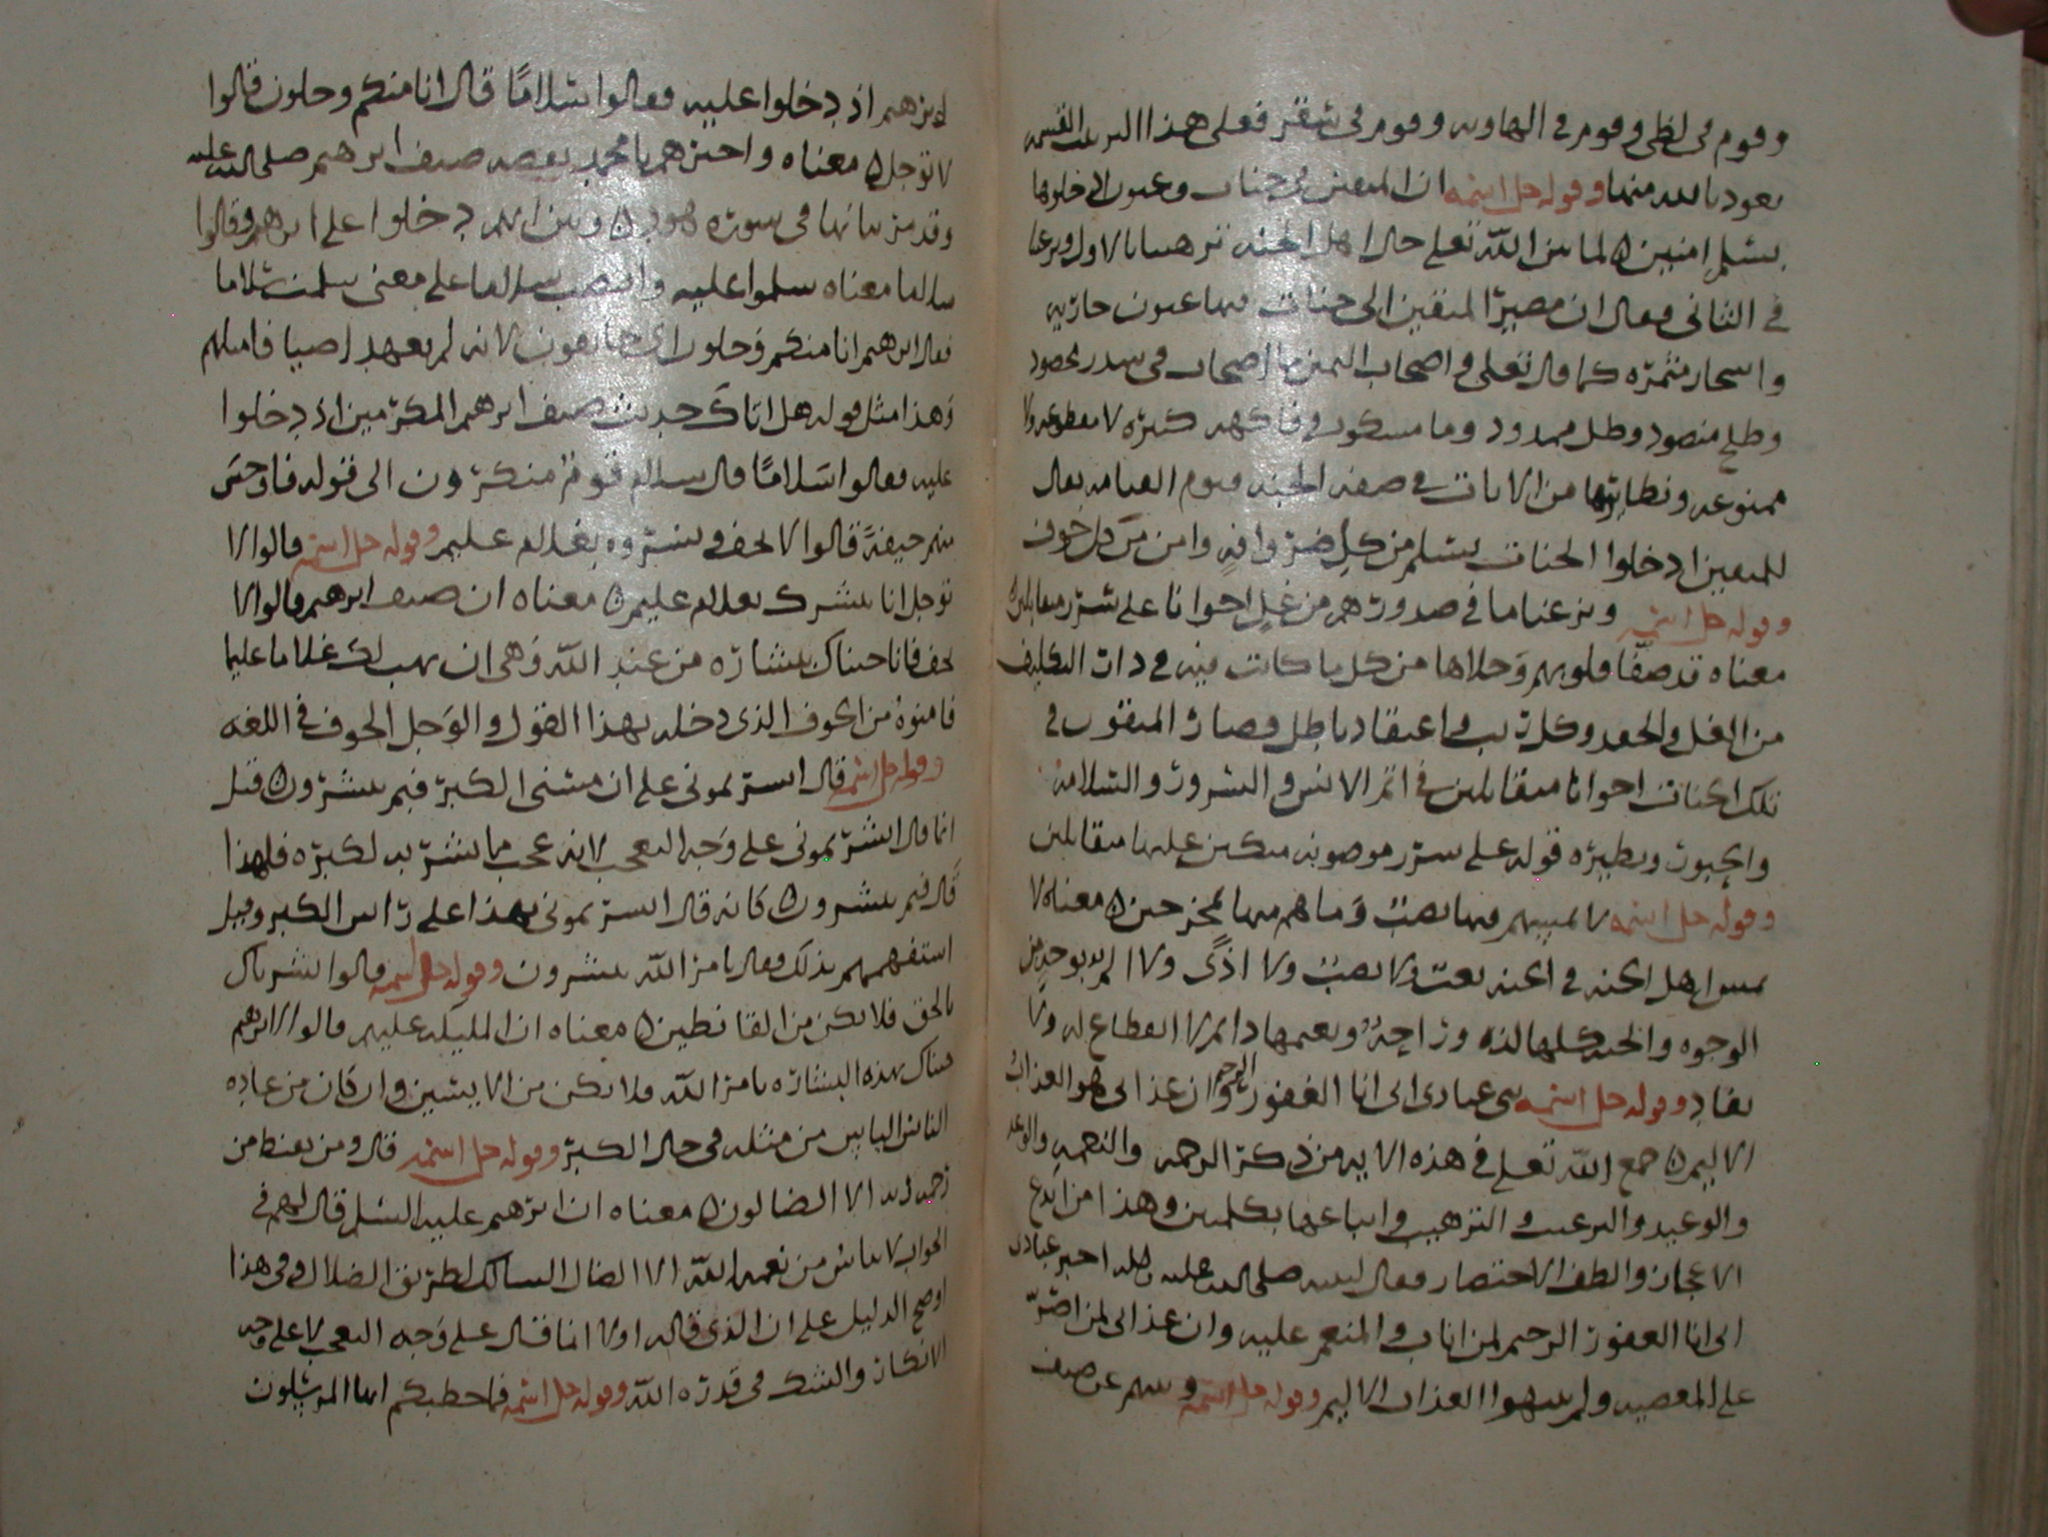 وقوم فى لظى وقوم فى الهاويه وقوم فى سقر فعلى هذا الترتيب القسمه
نعوذ بالله منها وقوله جل اسمه ان المتقين فى جنات وعيون ادخلوها
بسلم امنين لما بين الله تعلى حال اهل الجنه ترهيبا بالاول وترغيبا
فى الثانى فقال ان مصير المتقين الى جنات فيها عيون جاريه
واسجار مثمره كما قال تعلى واصحاب اليمين ما اصحاب فى سدر مخضود
وطلح منضود وظل ممدود وما مسكوب وفاكهه كثيره لا مقطوعه ولا
ممنوعه ونظايرها من الايات فى صفه الجنه فيوم القيامه يقال
للمتقين ادخلوا الجنات بسلم من كل ضر وافه وامن من كل خوف
وقوله جل اسمه ونزعنا ما فى صدورهم من غل اخوانا على سرر متقابلين
معناه قد صفا قلوبهم وخلاها من كل ما كانت فيه فى دار التكليف
من الغل والحقد وكل ريب واعتقاد باطل وصار المتقون فى
تلك الجنات اخوانا متقابلين فى اتم الانس والسرور والسلامه
والحبور ونظيره قوله على سرر موضونه متكين عليها متقابلين
وقوله جل اسمه لا يمسهم فيها نصب وما هم منها بمخرجين معناه لا
يمس اهل الجنه فى الجنه تعب ولا نصب ولا اذى ولا الم بوجه من
الوجوه والجنه كلها لذه وراحه ونعيمها دايم لا انقطاع له ولا
نفاد وقوله جل اسمه نبى عبادى انى انا الغفور الرحيم وان عذابى هو العذاب
الاليم جمع الله تعلى فى هذه الايه من ذكر الرحمه والنعمه والوعد
والوعيد والترغيب والترهيب واتباعها بكلمتين وهذا من ابدع
الاعجاز والطف الاختصار فقال لنبيه صلى الله عليه واله اخبر عبادى
انى انا الغفور الرحيم لمن اناب والمنعم عليه وان عذابى لمن اصر
على المعصيه ولم ينتهوا العذاب الاليم وقوله جل اسمه ونبيهم عن ضيف
ابرهيم اذ دخلوا عليه فقالوا سلاما قال انا منكم وجلون قالوا
لا توجل معناه واخبرهم يا محمد بقصه ضيف ابرهيم صلى الله عليه
وقد مر بيانها فى سوره هود وبين انهم دخلوا على ابرهيم وقالوا
سلاما معناه سلموا عليه وانتصب سلاما على معنى سلمت سلاما
فقال ابرهيم انا منكم وجلون اى خايفون لانه لم يعهد اضيافا مثلهم
وهذا مثل قوله هل اتاك حديث ضيف ابرهيم المكرمين اذ دخلوا
عليه فقالوا سلاما قال سلام قوم منكرون الى قوله فاوجس
منهم خيفة قالوا لا تخف وبشروه بغلام عليم وقوله جل اسمه قالوا لا
توجل انا نبشرك بغلام عليم معناه ان ضيف ابرهيم قالوا لا
تخف فانا جيناك ببشاره من عند الله وهى ان يهب لك غلاما عليما
فامنوه من الخوف الذى دخله بهذا القول والوجل الخوف فى اللغه
وقوله جل اسمه قال ابشرتمونى على ان مسنى الكبر فبم تبشرون قيل
انما قال ابشرتمونى على وجه التعجب لانه عجب ما بشر به لكبره فلهذا
قال فبم تبشرون كانه قال ابشرتمونى بهذا على راس الكبر وقيل
استفهمهم بذلك فقال بامر الله تبشرون وقوله جل اسمه قالوا بشرناك
بالحق فلا تكن من القانطين معناه ان المليكه عليهم قالوا لابرهيم
جيناك بهذه البشاره بامر الله فلا تكن من الايسين وان كان من عاده
الناس الياس من مثله فى حال الكبر وقوله جل اسمه قال ومن يقنط من
رحمه ربه الا الضالون معناه ان ابرهيم عليه السلم قال لهم فى
الجواب لا يياس من نعمه الله الا الضال السالك لطريق الضلال وفى هذا
اوضح الدليل على ان الذى قاله اولا انما قال على وجه التعجب لا على وجه
الانكار والشك فى قدره الله وقوله جل اسمه فما خطبكم ايها المرسلون